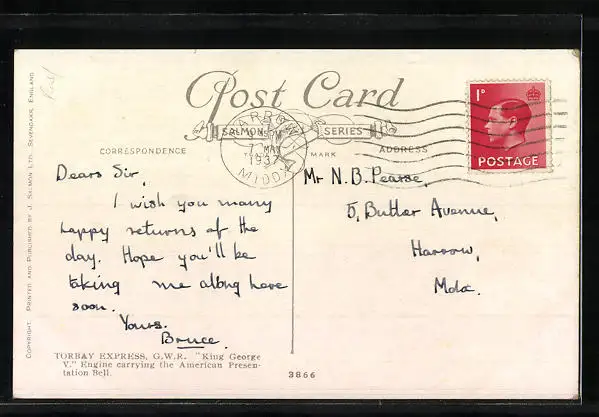 Post Card
SALMON SERIES
TRADE MARK
CORRESPONDENCE
ADDRESS
1D
POSTAGE
HARROW
7 MAY
1937
MIDDX
Dears Sir,
I wish you many
happy returns of the
day. Hope you'll be
taking me along here
soon.
Yours.
Bruce.
Mr N.B. Pearse,
5, Butler Avenue,
Harrow,
Mdx.
TORBAY EXPRESS, G.W.R. "King George
V." Engine carrying the American Presen-
tation Bell.
3866
COPYRIGHT. PRINTED AND PUBLISHED BY J. SALMON LTD. SEVENOAKS, ENGLAND